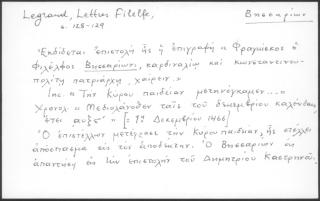 Legrand, Lettres Filelfe,
σ. 128-129
Βησσαρίων
Ἐκδίδεται ἐπιστολὴ ἧς ἡ ἐπιγραφὴ « Φραγκῖσκος ὁ
Φιλέλφος Βησσαρίωνι, καρδιναλίῳ καὶ Κωνσταντινου-
πολίτῃ πατριάρχῃ, χαίρειν.»
Inc. « Τὴν Κύρου παιδείαν μετηνόχαμεν....»
Χρονολ. « Μεδιολάνοθεν ταῖς τοῦ δεκεμβρίου καλάνδαις
ἔτει αυξς´ » [= 1η Δεκεμβρίου 1466]
Ὁ ἐπιστέλλων μετέφρασε τὴν Κύρου παιδείαν, ἧς στέλλει
ἀπόσπασμα εἰς τὸν ἀποδέκτην. Ὁ Βησσαρίων
ἀπαντήσῃ εἰς τὴν ἐπιστολὴν τοῦ Δημητρίου Καστρηνοῦ.